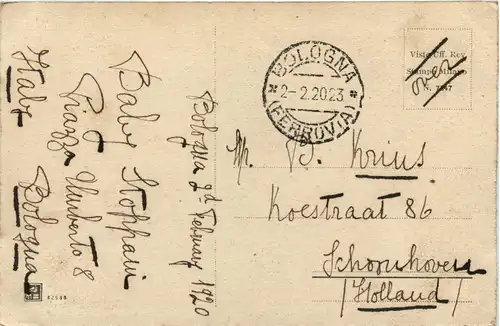 Baby Stoppani
Piazza Umberto 8
Bologna
Italy
Bologna 9th February 1920
BOLOGNA
2-2.20 23
(FERROVIA)
Visto Uff. Rev.
Stampa Milano
N. 7147
over
B. Krius
Koestraat 86
Schoonhoven
/Holland/
42508